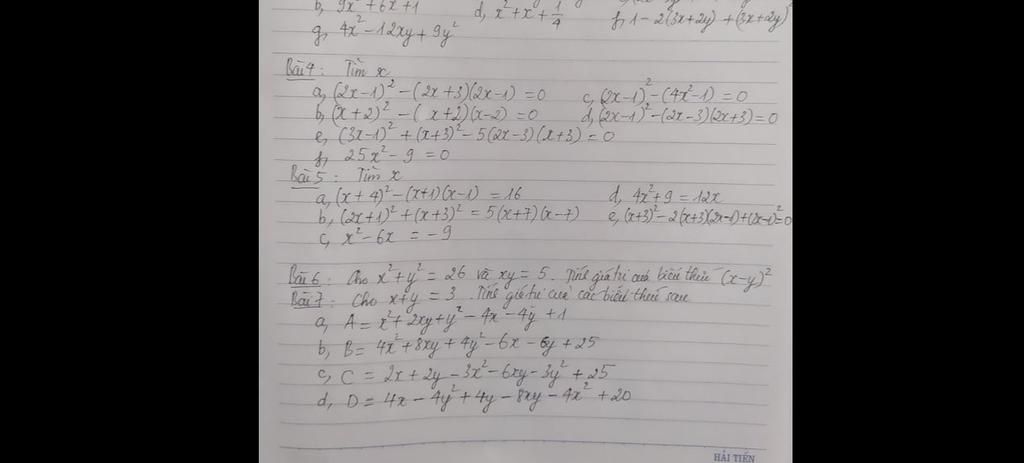 b, 9x² + 6x + 1 d, x² + x + 1/4 f, 1 - 2(3x+2y) + (3x+2y)²
g, 4x² - 12xy + 9y²
Bài 4: Tìm x
a, (2x-1)² - (2x+3)(2x-1) = 0 c, (2x-1)² - (4x²-1) = 0
b, (x+2)² - (x+2)(x-2) = 0 d, (2x-1)² - (2x-3)(2x+3) = 0
e, (3x-1)² + (x+3)² - 5(2x-3)(x+3) = 0
f, 25x² - 9 = 0
Bài 5: Tìm x
a, (x+4)² - (x+1)(x-1) = 16 d, 4x² + 9 = 12x
b, (2x+1)² + (x+3)² = 5(x+7)(x-7) e, (x+3)² - 2(x+3)(2x-1) + (2x-1)² = 0
c, x² - 6x = -9
Bài 6: Cho x² + y² = 26 và xy = 5. Tính giá trị của biểu thức (x-y)²
Bài 7: Cho x+y = 3. Tính giá trị của các biểu thức sau
a, A = x² + 2xy + y² - 4x - 4y + 1
b, B = 4x² + 8xy + 4y² - 6x - 6y + 25
c, C = 2x + 2y - 3x² - 6xy - 3y² + 25
d, D = 4x - 4y² + 4y - 8xy - 4x² + 20
HẢI TIẾN